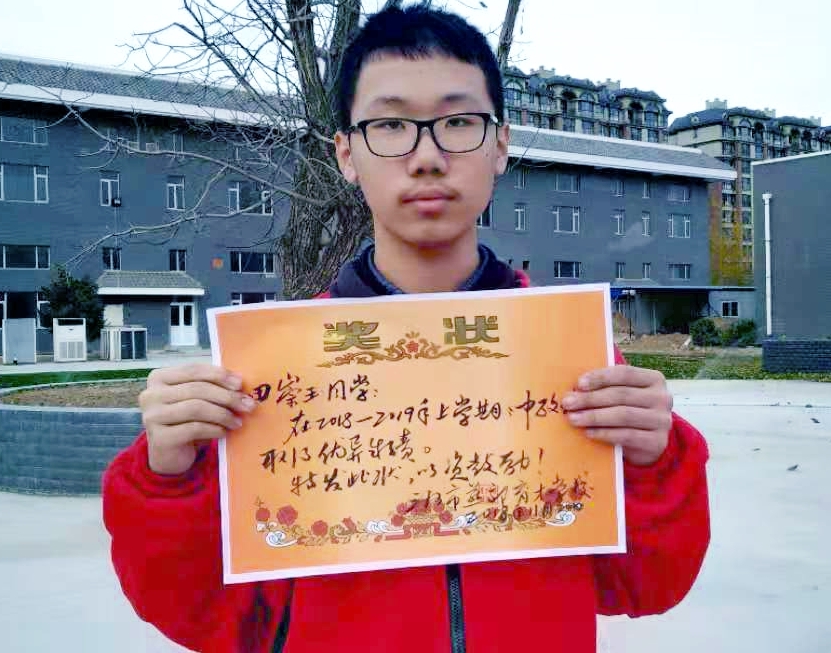 奖状
田崇王同学:
在2018—2019年上学期:中
取得优异成绩。
特发此状,以资鼓励!
三河市燕郊育才学校
2018年11月